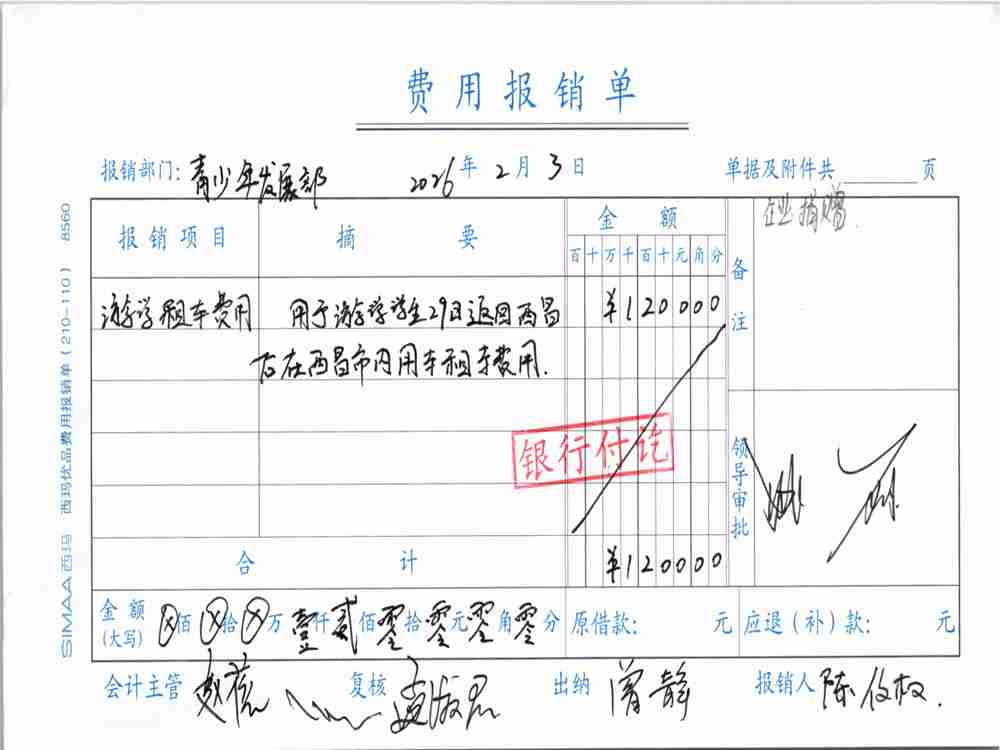 费用报销单
报销部门: 青少年发展部 2026年2月3日 单据及附件共 页
报销项目 摘要 金额 备注 企业捐赠.
百十万千百十元角分
游学租车费用 用于游学学生29日返回西昌 ¥120000
后在西昌市内用车租车费用.
银行付讫
领导审批
合计 ¥120000
金额(大写) ⊗佰⊗拾⊗万壹仟贰佰零拾零元零角零分 原借款: 元 应退(补)款: 元
会计主管 复核 出纳 曾静 报销人 陈
SIMAA西玛 西玛优品费用报销单(210-110) 8560